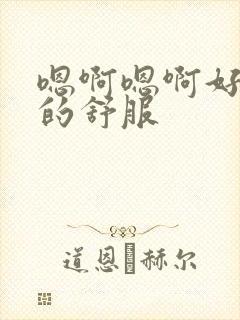 嗯啊嗯啊好
的舒服
道恩·赫尔